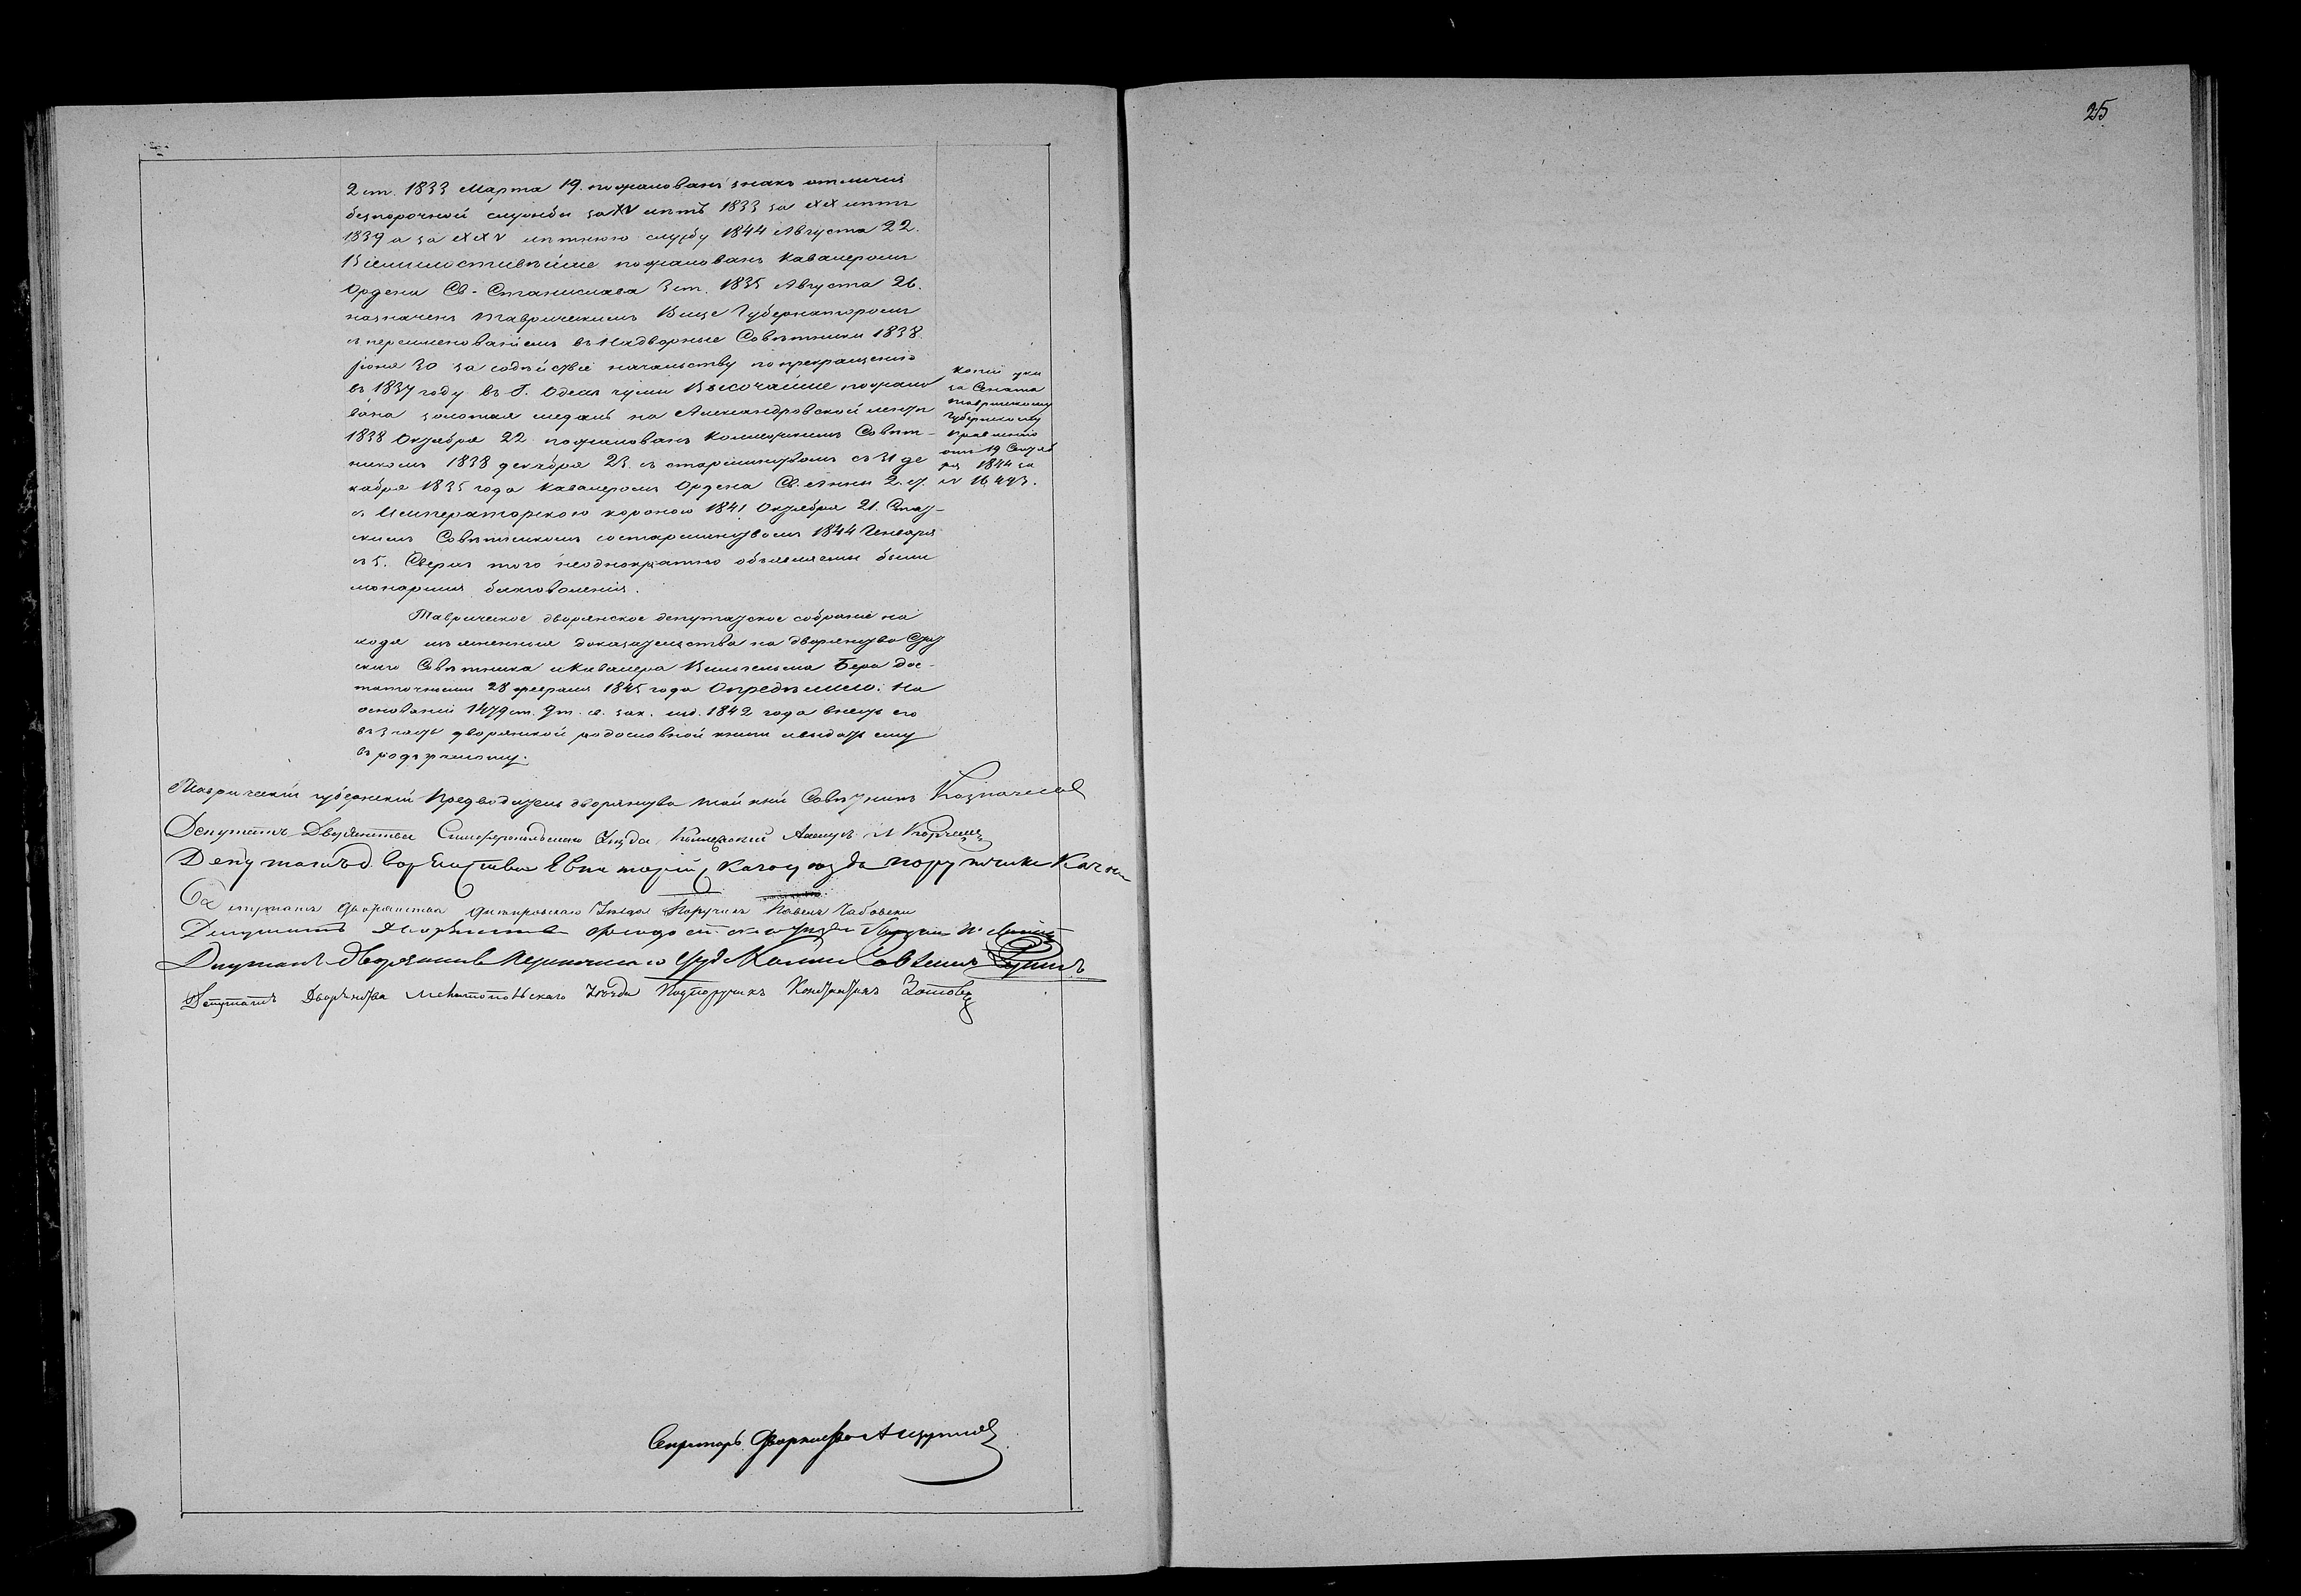 25
2 ст. 1833 Марта 19. пожалованъ знакъ отличія
безпорочной службы за XV лѣтъ 1833 за XX лѣтъ
1839 а за XXV лѣтнюю службу 1844 Августа 22.
Всемилостивѣйше пожалованъ Кавалеромъ
Ордена Св. Станислава 3 ст. 1835 Августа 26.
назначенъ Таврическимъ Вице Губернаторомъ
съ переименованіемъ въ Надворные Совѣтники 1838
Іюня 30 за содѣйствіе начальству по прекращенію
въ 1837 году въ Г. Одесѣ чумы Высочайше пожало
вана золотая медаль на Александровской лентѣ
1838 Октября 22 пожалованъ Коллежскимъ Совѣт-
никомъ 1838 декабря 23. съ старшинствомъ съ 31 де
кабря 1835 года Кавалеромъ Ордена Св. Анны 2. ст
съ Императорскою короною 1841 Октября 21. Стат-
скимъ Совѣтникомъ со старшинствомъ 1844 Генваря
съ 5. Сверхъ того неоднократно объявляемы были
монаршія благоволенія.
Копіи ука
за Сената
Таврическому
Губернскому
Правленію
отъ 19 Сентяб
ря 1844 за
№ 16,493.
Таврическое дворянское депутатское собраніе на
ходя изъясненныя доказательства на дворянство Стат
скаго Совѣтника и Кавалера Вильгельма Бера дос-
таточными 28 февраля 1845 года Опредѣлило: На
основаніи 1479 ст. 9 т. св. зак. изд. 1842 года внесть его
въ 3 часть дворянской родословной книги и выдать ему
въ родъ грамоту.
Таврическій губернскій Предводитель дворянства тайный Совѣтникъ Казначеевъ
Депутатъ Дворянства Симферопольскаго Уѣзда, Коллежскій Ассесоръ
Депутатъ дворянства Евпаторійскаго уезда поручикъ
Депутатъ дворянства Днѣпровскаго Уѣзда Поручикъ Павелъ
Депутатъ Дворянства Феодосійскаго Уезда
Депутатъ Дворянства
Депутатъ Дворянства Мелитопольскаго Уѣзда Подпоручикъ Константинъ Зотовъ
Секретарь Дворянства